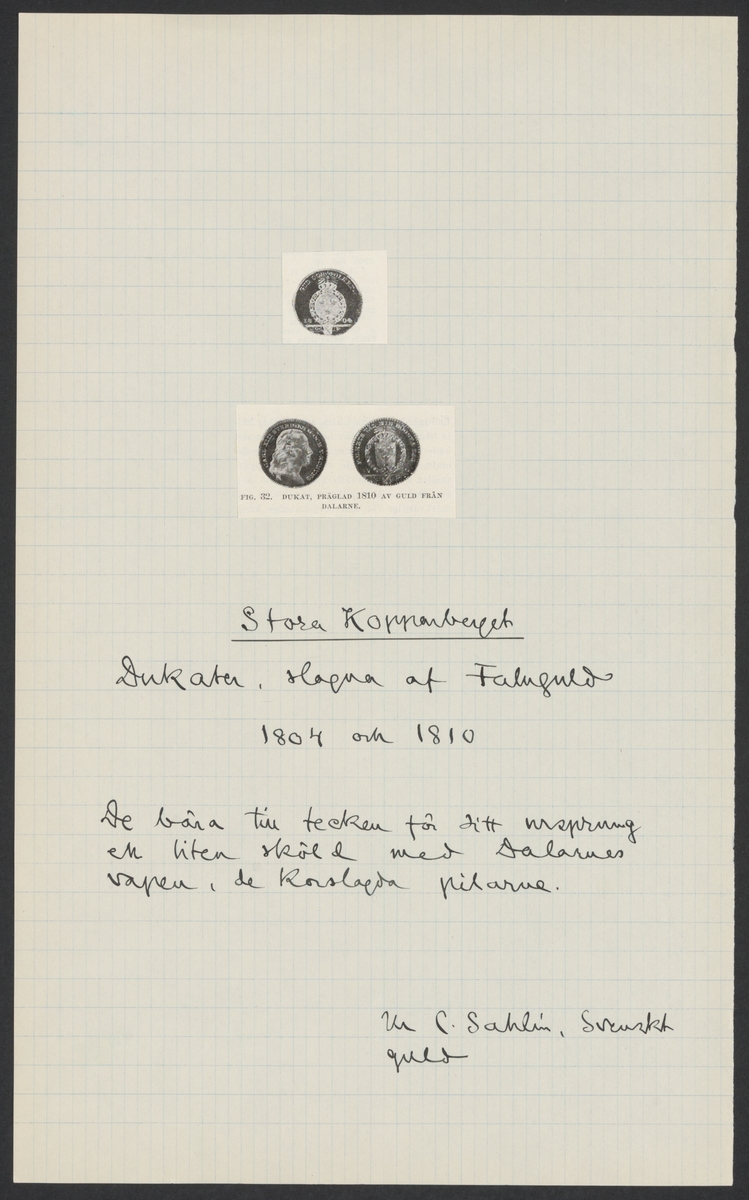 FIG. 32. DUKAT, PRÄGLAD 1810 AV GULD FRÅN
DALARNE.
Stora Kopparberget
Dukater, slagna af Faluguld
1804 och 1810
De bära till tecken för sitt ursprung
en liten sköld med Dalarnes
vapen, de korslagda pilarne.
Ur C. Sahlin, Svenskt
guld